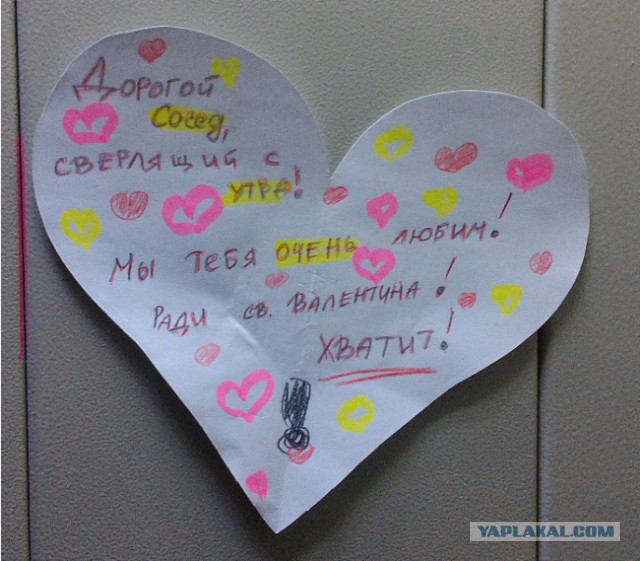 Дорогой
Сосед,
сверлящий с
утра!
Мы тебя очень любим!
Ради св. Валентина!
Хватит!
YAPLAKAL.COM